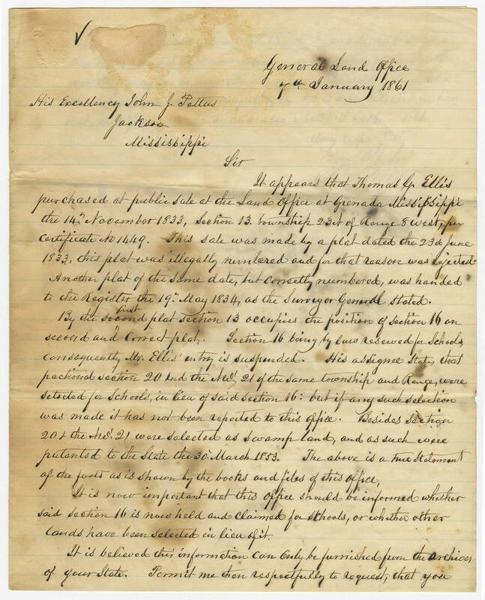 General Land Office
7th January 1861
His Excellency John J. Pettus
Jackson
Mississippi
Sir
It appears that Thomas G. Ellis
purchased at public sale at the Land Office at Grenada Mississippi
the 14th November 1833, Section 13. Township 23 N of Range 8 West, per
Certificate No 1449. This sale was made by a plat dated the 23d June
1833, this plat was illegally numbered and for that reason was rejected.
Another plat of the same date, but correctly numbered, was handed
to the Register the 19th May 1834, as the Surveyor General stated.
By the first plat Section 13 occupies the position of Section 16 on
second and correct plat. Section 16 being by law reserved for Schools,
consequently Mr Ellis' entry is suspended. His assignee states, that
fractional section 20 and the NW¼ 21 of the same township and Range, were
selected for Schools, in lieu of said Section 16: but if any such selection
was made it has not been reported to this office. Besides Section
20 & the NW¼ 21 were selected as Swamp land, and as such were
patented to the State the 30 March 1853. The above is a true statement
of the facts as is shown by the books and files of this office,
It is now important that this Office should be informed whether
said section 16 is now held and claimed for schools, or whether other
lands have been selected in lieu of it.
It is believed this information can only be furnished from the archives
of your State. Permit me then respectfully to request, that you